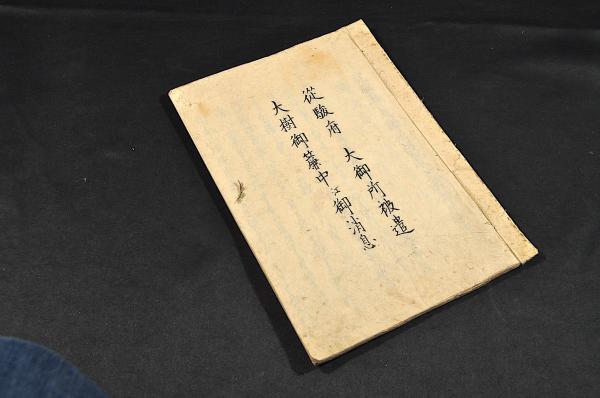 從駿府 大御所被遣
大樹御簾中江御消息